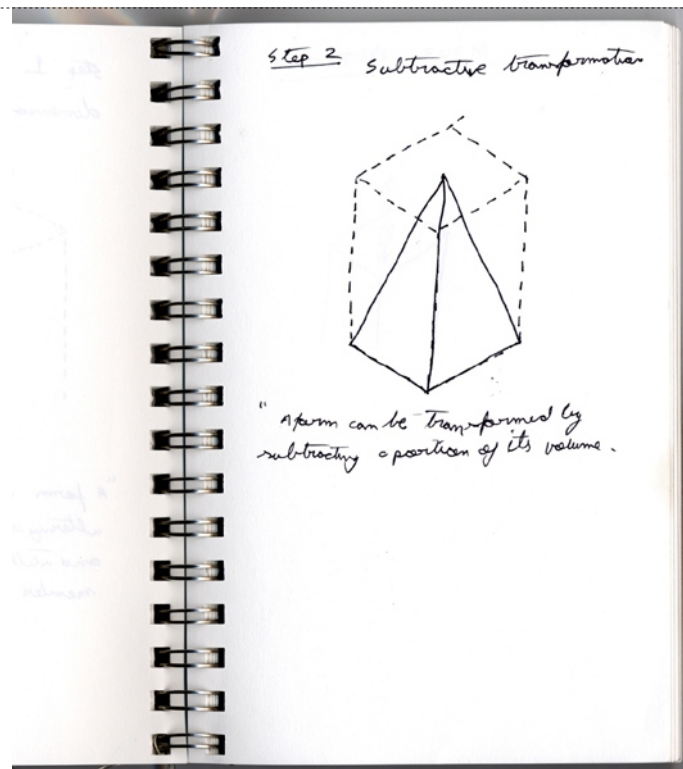 Step 2 Subtractive transformation
" A form can be transformed by
subtracting a portion of its volume.